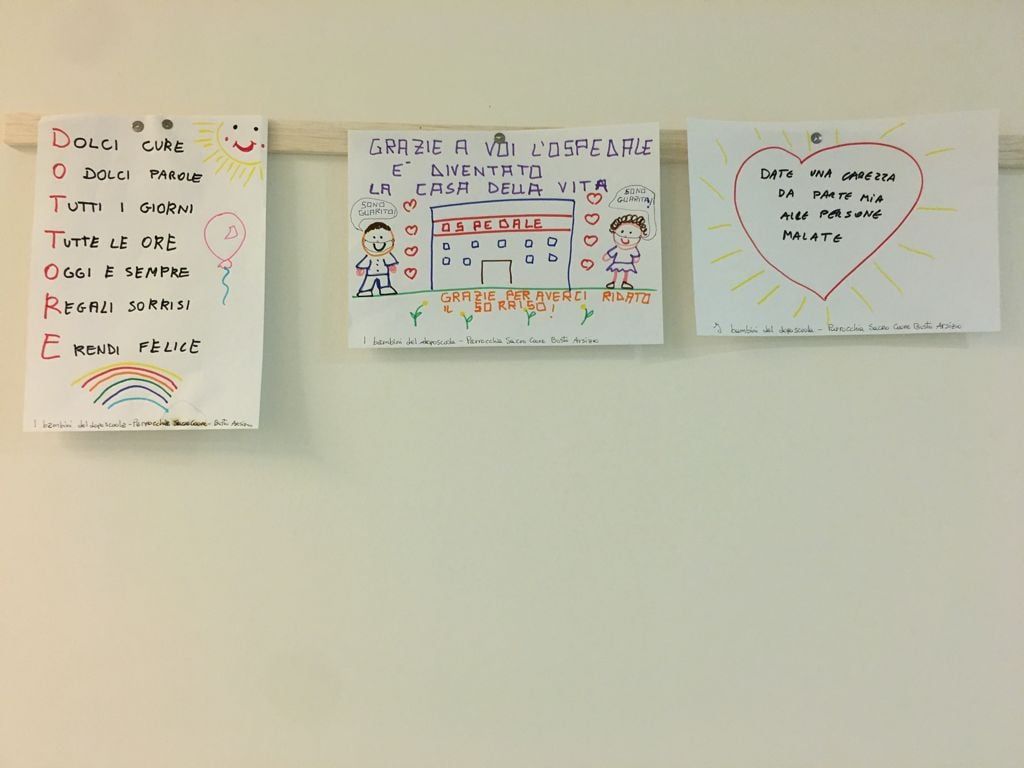 DOLCI CURE
O DOLCI PAROLE
TUTTI I GIORNI
TUTTE LE ORE
OGGI E SEMPRE
REGALI SORRISI
E RENDI FELICE
I bambini del doposcuola - Parrocchia Sacro Cuore - Busto Arsizio
GRAZIE A VOI L'OSPEDALE
E' DIVENTATO
LA CASA DELLA VITA
SONO
GUARITO!
SONO
GUARITA!
OSPEDALE
GRAZIE PER AVERCI RIDATO
IL SORRISO!
I bambini del doposcuola - Parrocchia Sacro Cuore Busto Arsizio
DATE UNA CAREZZA
DA PARTE MIA
ALLE PERSONE
MALATE
I bambini del doposcuola - Parrocchia Sacro Cuore Busto Arsizio